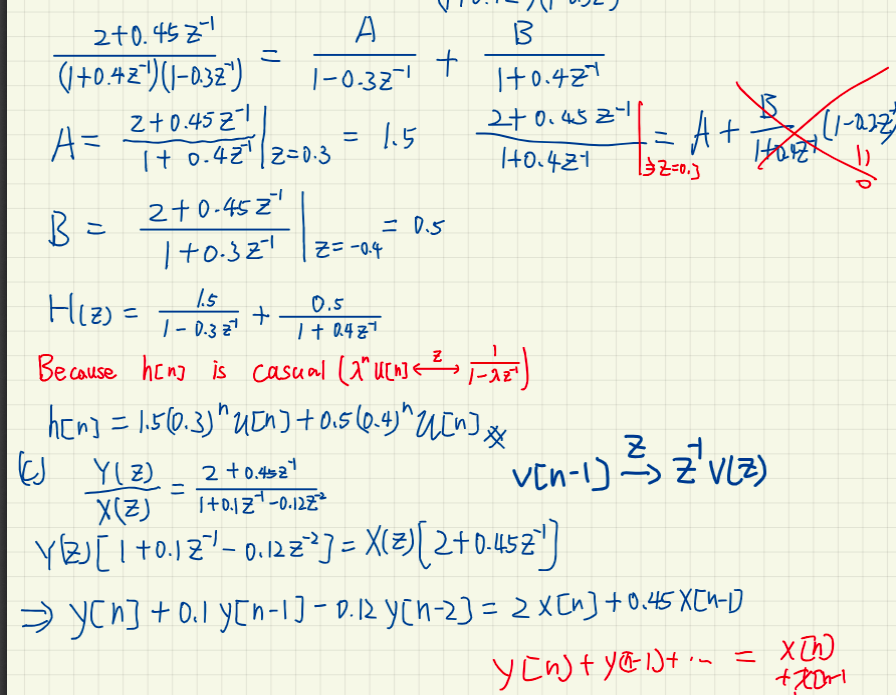 (2+0.45z⁻¹)/((1+0.4z⁻¹)(1-0.3z⁻¹)) = A/(1-0.3z⁻¹) + B/(1+0.4z⁻¹)
A = (2+0.45z⁻¹)/(1+0.4z⁻¹)|z=0.3 = 1.5
(2+0.45z⁻¹)/(1+0.4z⁻¹)|z=0.3 = A + B/(1+0.4z⁻¹) (1-0.3z⁻¹)
11
0
B = (2+0.45z⁻¹)/(1+0.3z⁻¹)|z=-0.4 = 0.5
H(z) = 1.5/(1-0.3z⁻¹) + 0.5/(1+0.4z⁻¹)
Because h[n] is casual (λⁿu[n] ←z→ 1/(1-λz⁻¹))
h[n] = 1.5(0.3)ⁿu[n] + 0.5(0.4)ⁿu[n]
(c) Y(z)/X(z) = (2+0.45z⁻¹)/(1+0.1z⁻¹-0.12z⁻²)
v[n-1] z→ z⁻¹V(z)
Y(z)[1+0.1z⁻¹-0.12z⁻²] = X(z)[2+0.45z⁻¹]
⇒ y[n]+0.1y[n-1]-0.12y[n-2] = 2x[n]+0.45x[n-1]
y[n]+y[n-1]+... = x[n]